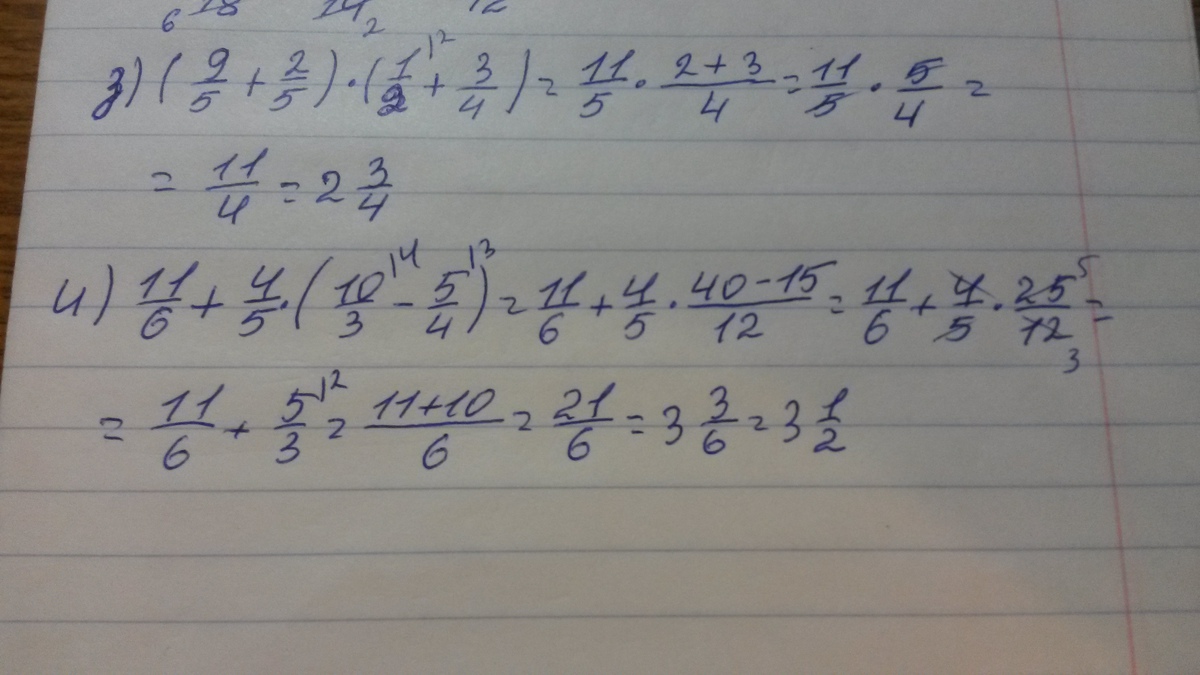 6 18 14 2 12
з) (9/5 + 2/5) · (1/2|² + 3/4) = 11/5 · (2+3)/4 = 11/5 · 5/4 =
= 11/4 = 2 3/4
и) 11/6 + 4/5 · (10/3|⁴ − 5/4|³) = 11/6 + 4/5 · (40−15)/12 = 11/6 + 4/5 · 25⁵/12₃ =
= 11/6 + 5/3|² = (11+10)/6 = 21/6 = 3 3/6 = 3 1/2